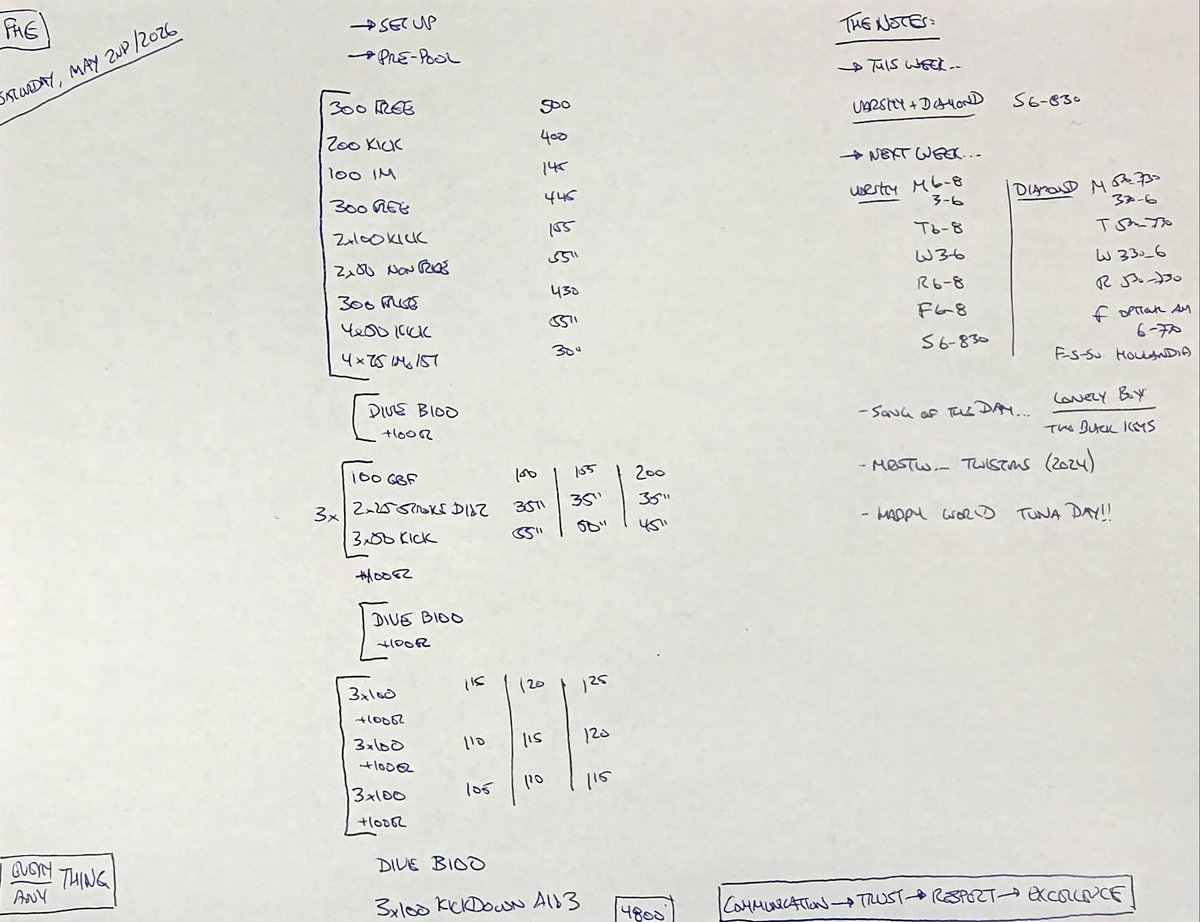 SATURDAY, MAY 2ND/2026
→ SET UP
→ PRE-POOL
300 FREE 500
200 KICK 400
100 IM 145
300 FREE 445
2x100 KICK 155
2x50 NON FREE 55"
300 FREE 430
4x50 KICK 55"
30"
DIVE B100
+100EZ
3x
100 GBF 1 55 200
2x25 STROKE 35" 35" 35"
3x50 KICK 55" 50" 45"
+100EZ
DIVE B100
+100EZ
3x100 115 120 125
+100EZ
3x100 110 115 120
+100EZ
3x100 105 110 115
+100EZ
DIVE B100
3x100 KICK DOWN A1D3
4800
THE NOTES:
→ THIS WEEK...
VARSITY + DIAMOND S 6-830
→ NEXT WEEK...
VARSITY M 6-8
3-6
T 6-8
W 3-6
R 6-8
F 6-8
S 6-830
DIAMOND M 530-730
330-6
T 530-730
W 330-6
R 530-730
F OPTION AM
6-730
F-S-SU HOLLANDIA
- SONG OF THE DAY... LONELY BOY
THE BLACK KEYS
- MBSTW... TWISTERS (2024)
- HAPPY WORLD TUNA DAY!!
EVERY
ANY THING
COMMUNICATION → TRUST → RESPECT → EXCELLENCE